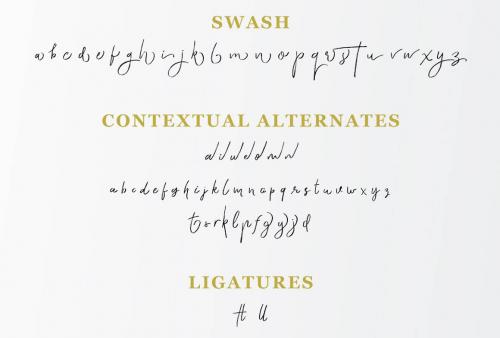 SWASH
a b c d e f g h i j k l m n o p q r s t u v w x y z
CONTEXTUAL ALTERNATES
a b c d e f g h i j k l m n o p q r s t u v w x y z
LIGATURES
tt ll